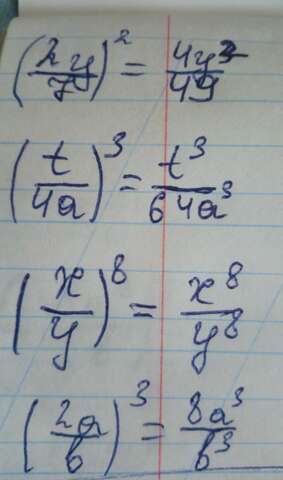 (2y/7)² = 4y²/49
(t/4a)³ = t³/64a³
(x/y)⁸ = x⁸/y⁸
(2a/b)³ = 8a³/b³